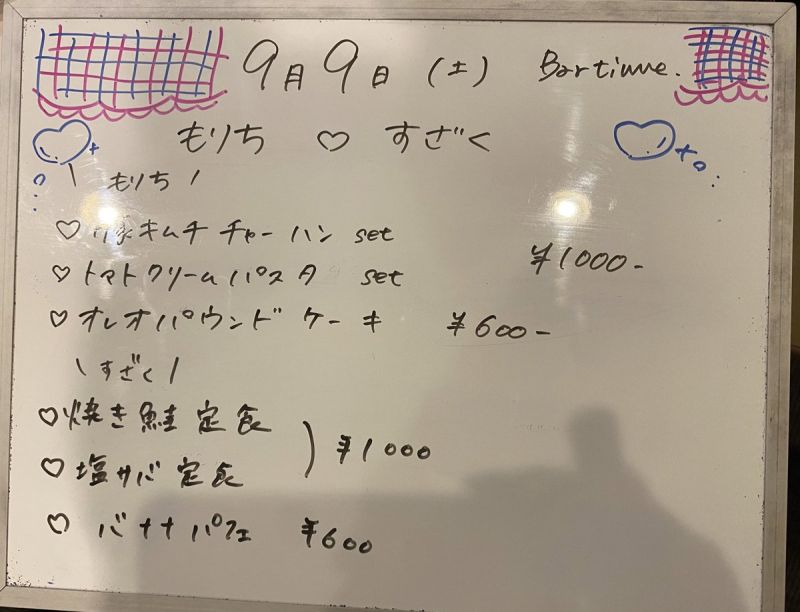 9月9日 (土) Bartimme.
もりち ♡ すざく
\ もりち /
♡ 豚キムチチャーハン set
¥1000-
♡ トマトクリームパスタ set
♡ オレオパウンドケーキ ¥600-
\ すざく /
♡ 焼き鮭定食
) ¥1000
♡ 塩サバ定食
♡ バナナパフェ ¥600